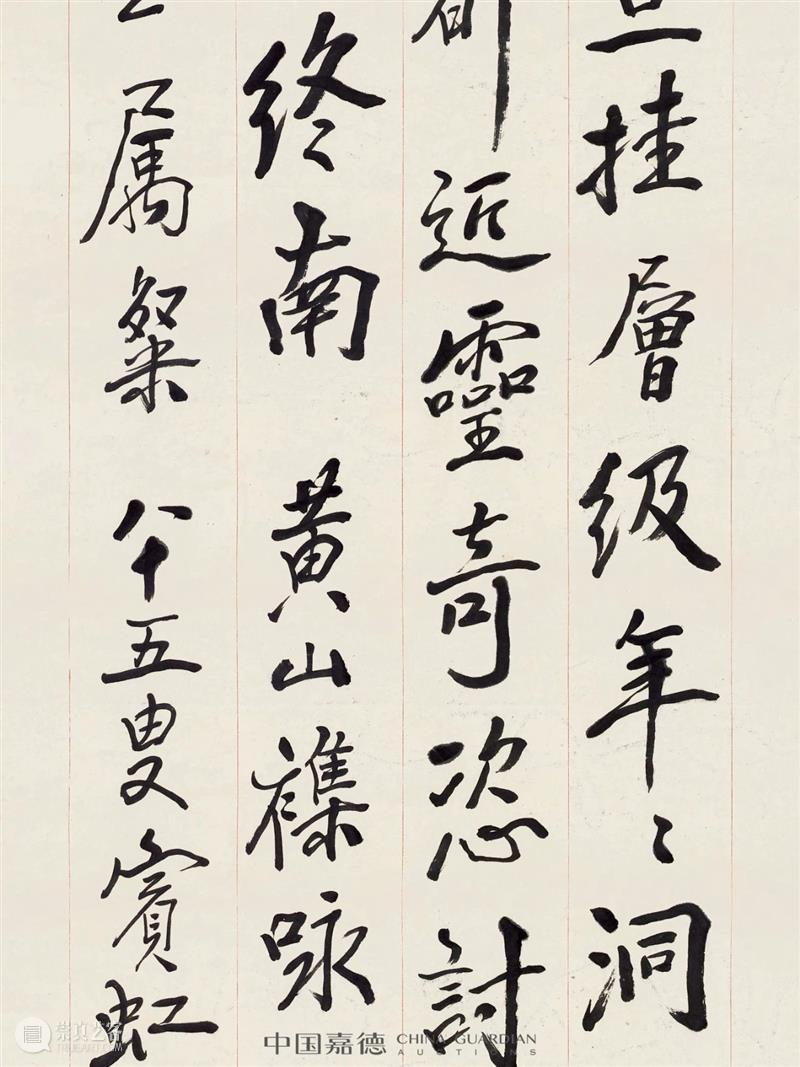 挂層級年〻洞
近靈奇恣討
終南 黄山襍咏
属粲 八十五叟賓虹
中国嘉德 CHINA GUARDIAN
AUCTIONS
崇真艺客